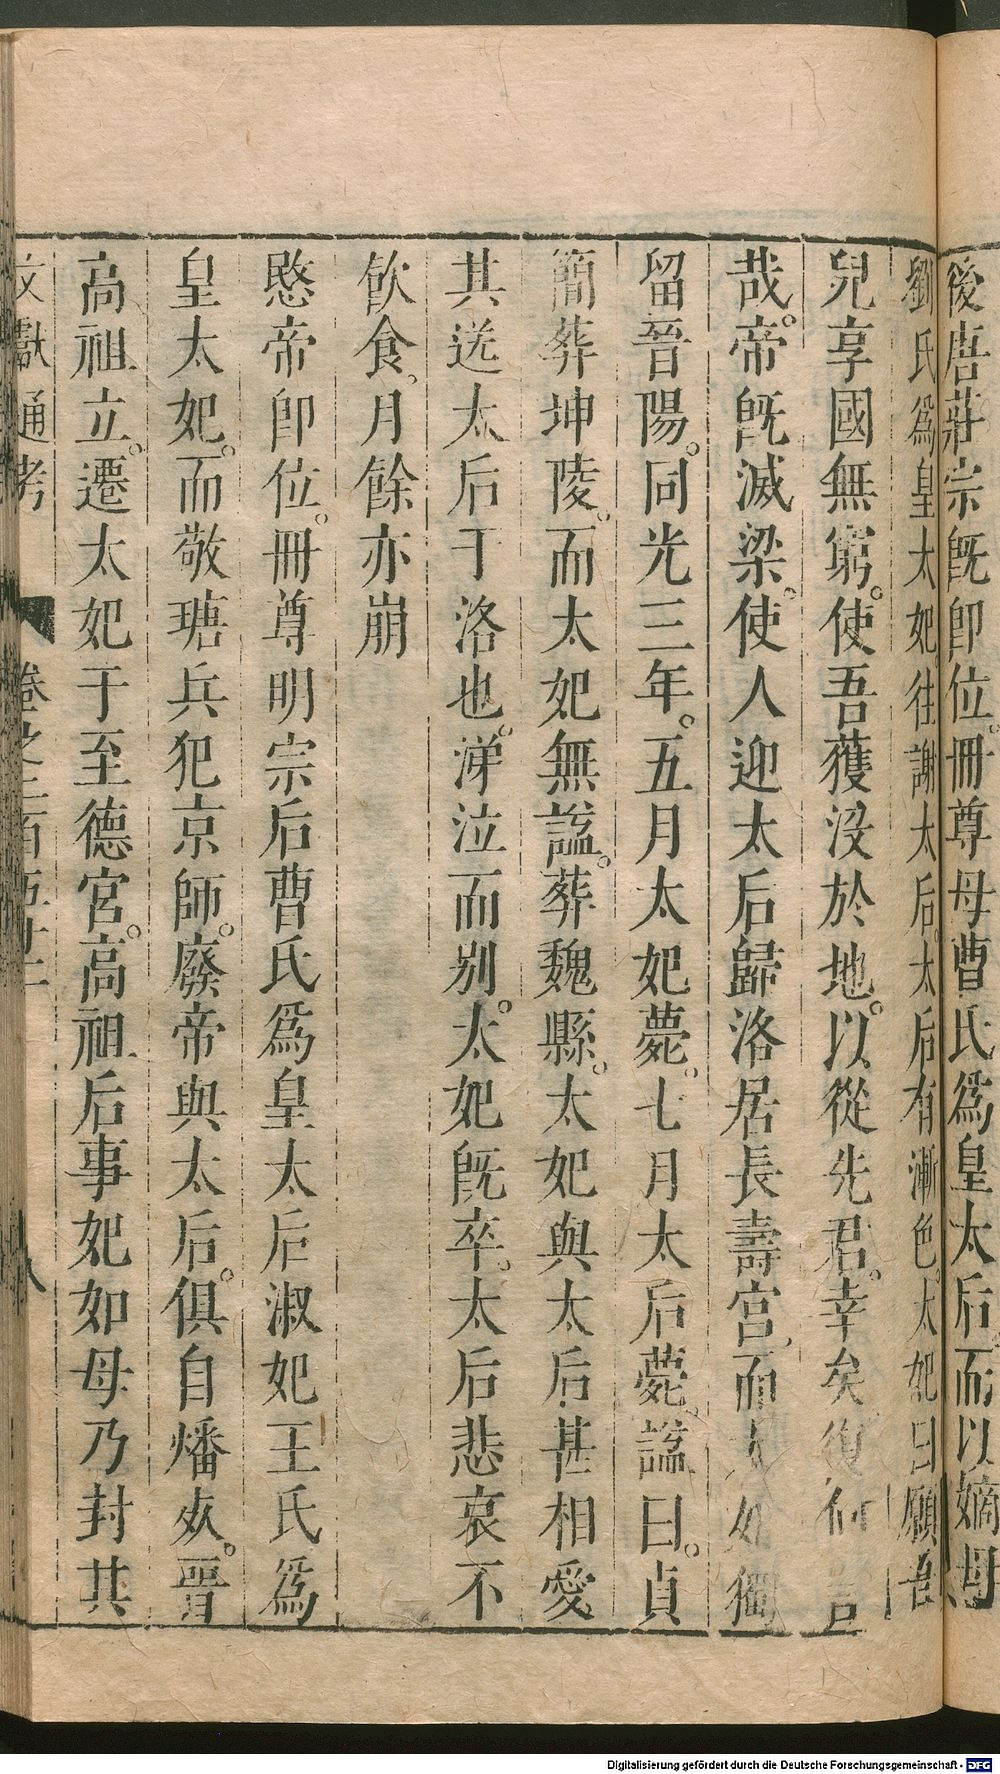 後唐莊宗旣卽位。冊尊母曹氏爲皇太后。而以嫡母
劉氏爲皇太妃。往謝太后。太后有漸色。太妃曰願吾
兒享國無窮。使吾獲没於地。以從先君。幸矣復何言
哉。帝旣滅梁。使人迎太后歸洛居長壽宮。而太妃獨
留晉陽。同光三年。五月太妃薨。七月太后薨。諡曰。貞
簡葬坤陵。而太妃無諡。葬魏縣。太妃與太后甚相愛
其送太后于洛也。涕泣而别。太妃旣卒。太后悲哀不
飲食。月餘亦崩
愍帝卽位。冊尊明宗后曹氏爲皇太后淑妃王氏爲
皇太妃。而敬瑭兵犯京師。廢帝與太后。俱自燔死。晉
高祖立。遷太妃于至德宮。高祖后事妃如母乃封其
文獻通考 卷之二百五十二 八
Digitalisierung gefördert durch die Deutsche Forschungsgemeinschaft - DFG